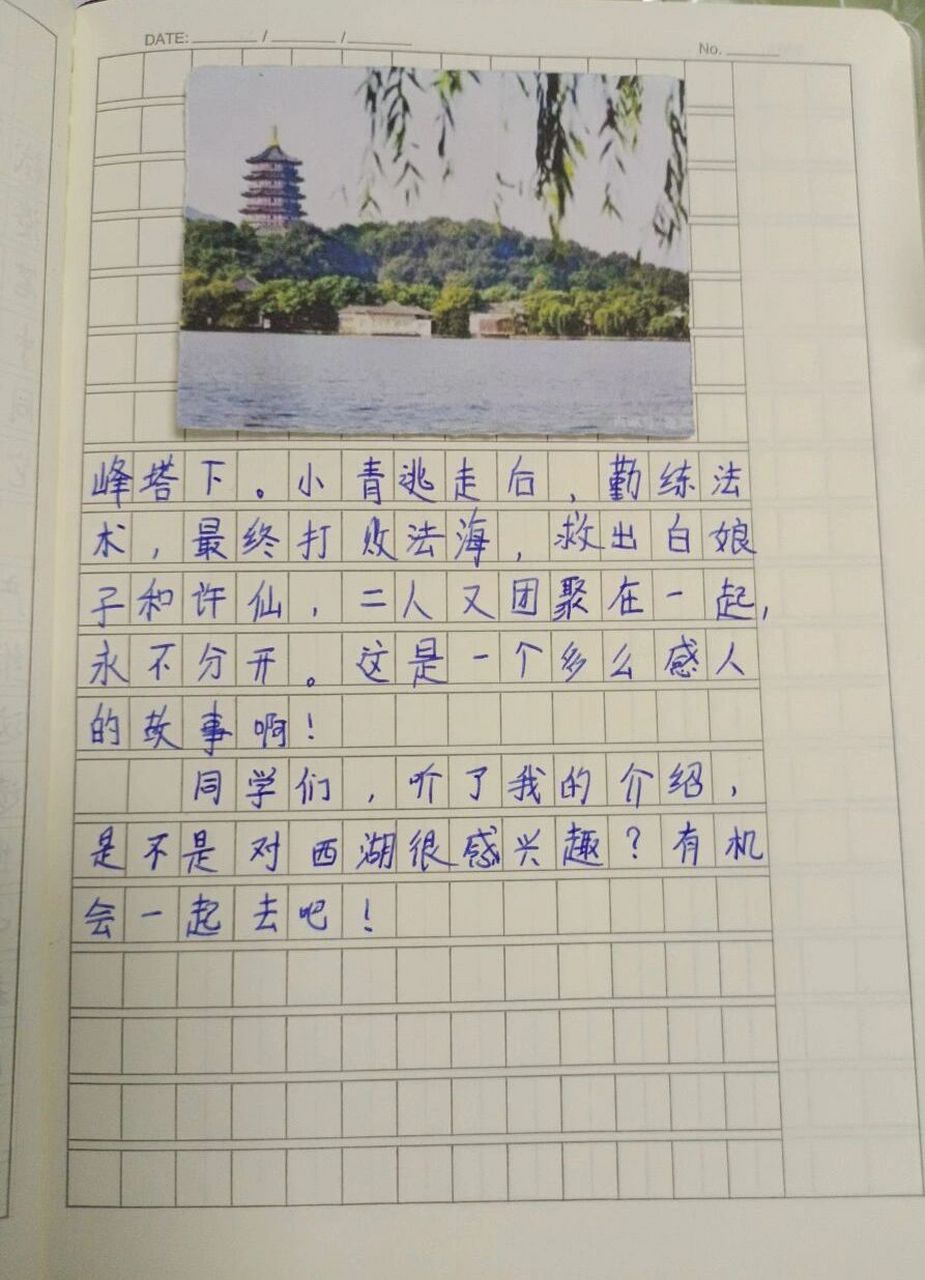 DATE: ______ / ______ / ______
No. ______
峰塔下。小青逃走后，勤练法
术，最终打败法海，救出白娘
子和许仙，二人又团聚在一起，
永不分开。这是一个多么感人
的故事啊！
同学们，听了我的介绍，
是不是对西湖很感兴趣？有机
会一起去吧！